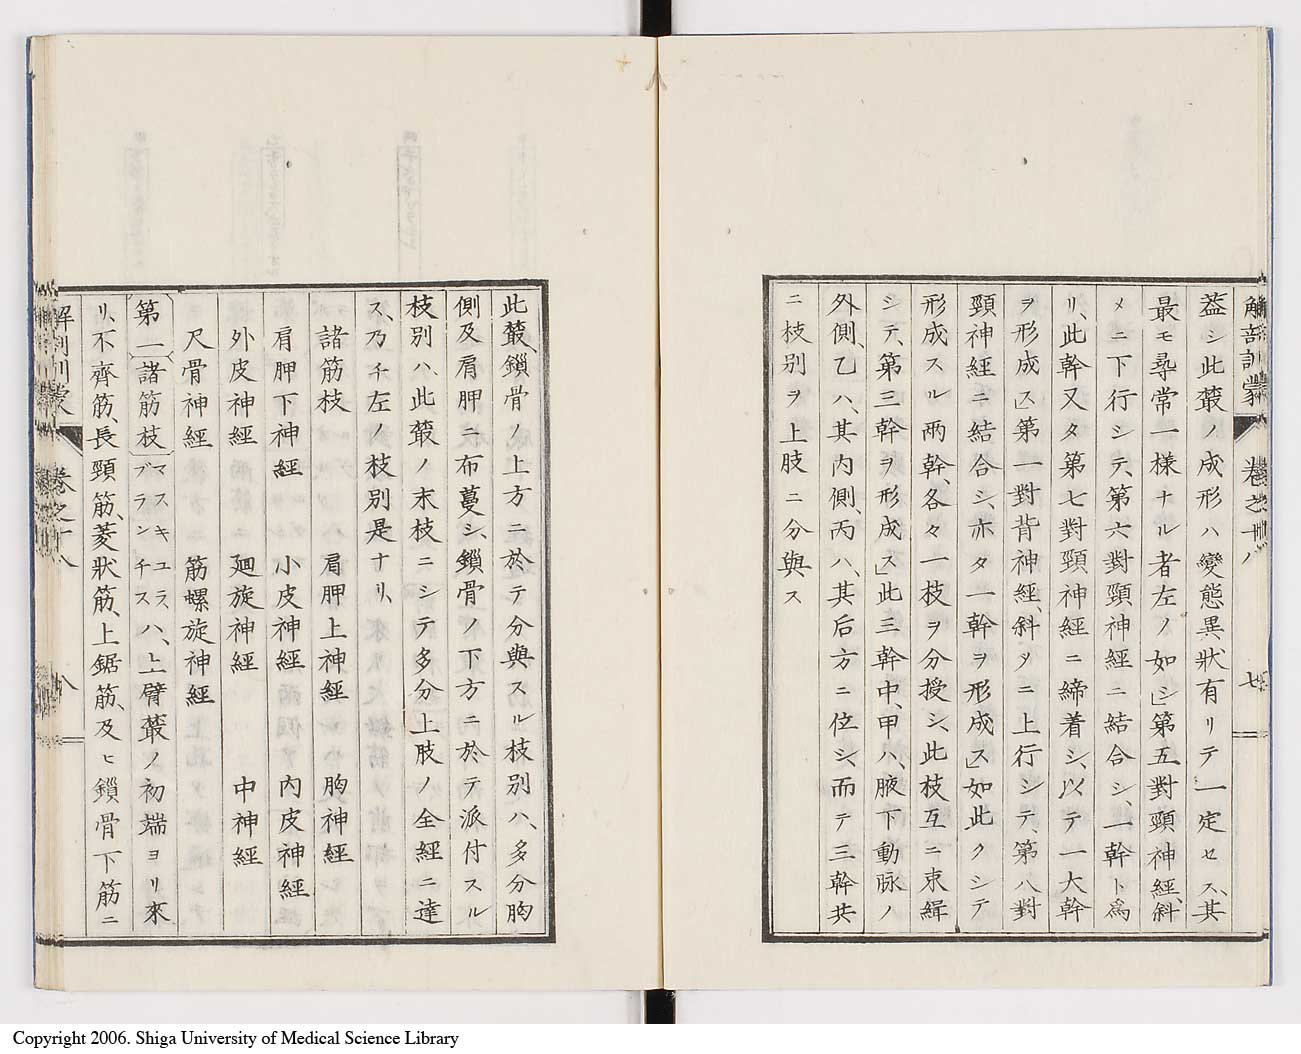 解剖訓蒙 卷之十八 七
蓋シ此叢ノ成形ハ變態異狀有リテ一定セス、其
最モ尋常一樣ナル者左ノ如シ」第五對頸神經、斜
メニ下行シテ、第六對頸神經ニ結合シ、一幹ト爲
リ、此幹又タ第七對頸神經ニ締着シ、以テ一大幹
ヲ形成ス」第一對背神經、斜メニ上行シテ、第八對
頸神經ニ結合シ、亦タ一幹ヲ形成ス」如此クシテ
形成スル兩幹、各々一枝ヲ分授シ、此枝互ニ束緝
シテ、第三幹ヲ形成ス」此三幹中、甲ハ、腋下動脉ノ
外側、乙ハ、其內側、丙ハ、其后方ニ位シ、而テ三幹共
ニ枝別ヲ上肢ニ分與ス
此叢、鎖骨ノ上方ニ於テ分與スル枝別ハ、多分胸
側及肩胛ニ布蔓シ、鎖骨ノ下方ニ於テ派付スル
枝別ハ、此叢ノ末枝ニシテ多分上肢ノ全經ニ達
ス、乃チ左ノ枝別是ナリ、
諸筋枝 肩胛上神經 胸神經
肩胛下神經 小皮神經 內皮神經
外皮神經 廻旋神經 中神經
尺骨神經 筋螺旋神經
第一諸筋枝 マスキユラ、ブランチスハ、上臂叢ノ初端ヨリ來
リ、不齊筋、長頸筋、菱狀筋、上鋸筋、及ヒ鎖骨下筋ニ
解剖訓蒙 卷之十八
Copyright 2006. Shiga University of Medical Science Library